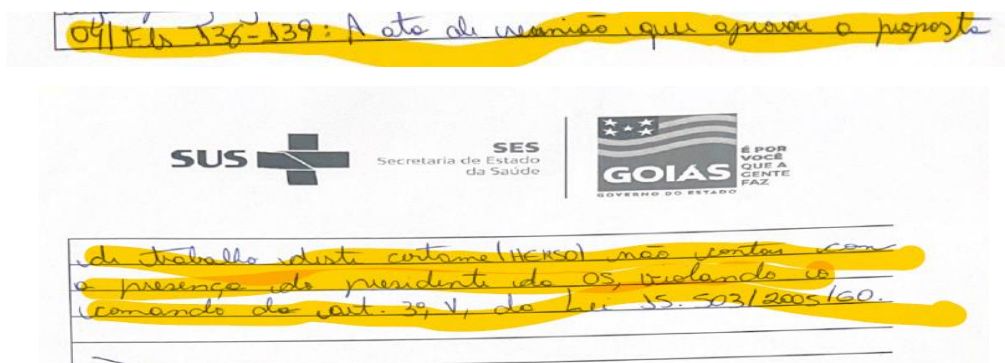 04/ Fls 136-139: A ata de reunião que aprovou a proposta
SUS
SES
Secretaria de Estado
da Saúde
GOIÁS
GOVERNO DO ESTADO
É POR
VOCÊ
QUE A
GENTE
FAZ
de trabalho deste certame (HEMSO) não contou com
a presença do presidente da OS, violando o
comando do art. 3º, V, da Lei 15.503/2005/GO.